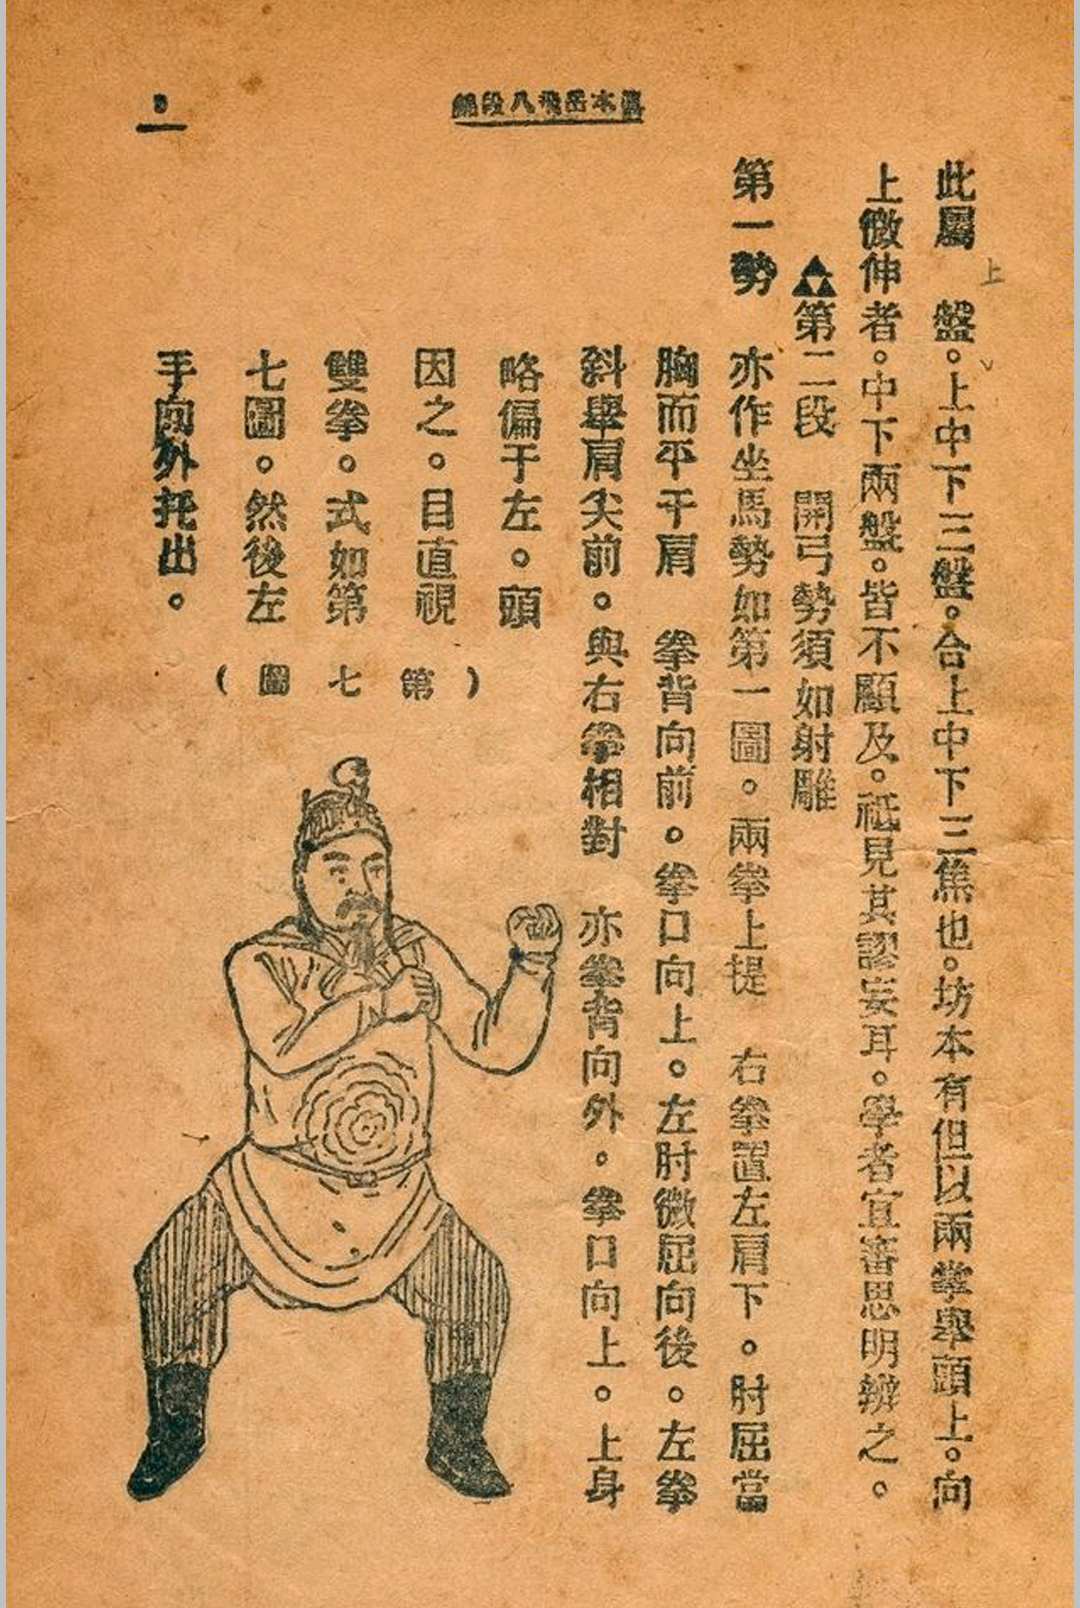 真本岳飛八段錦
此屬　盤。上中下三盤。合上中下三焦也。坊本有但以兩拳舉頭上。向
上
上微伸者。中下兩盤。皆不顧及。祇見其謬妄耳。學者宜審思明辨之。
第二段　開弓勢須如射雕
第一勢　亦作坐馬勢如第一圖。兩拳上提　右拳置左肩下。肘屈當
胸而平于肩　拳背向前。拳口向上。左肘微屈向後。左拳
斜舉肩尖前。與右拳相對　亦拳背向外。拳口向上。上身
略偏于左。頭
因之。目直視
雙拳。式如第
七圖。然後左
手向外托出。
（第七圖）